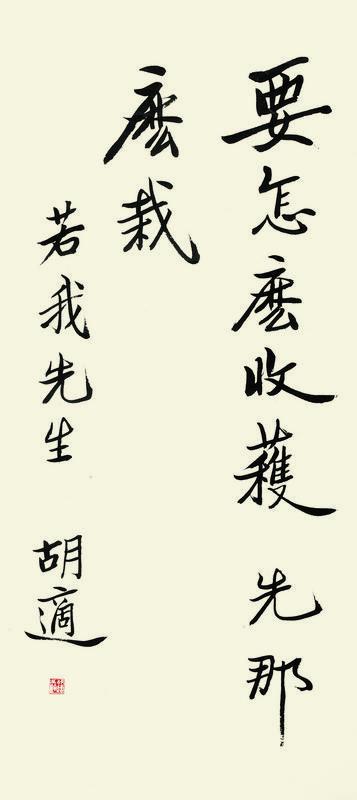 要怎麽收穫 先那
麽栽
若我先生 胡適